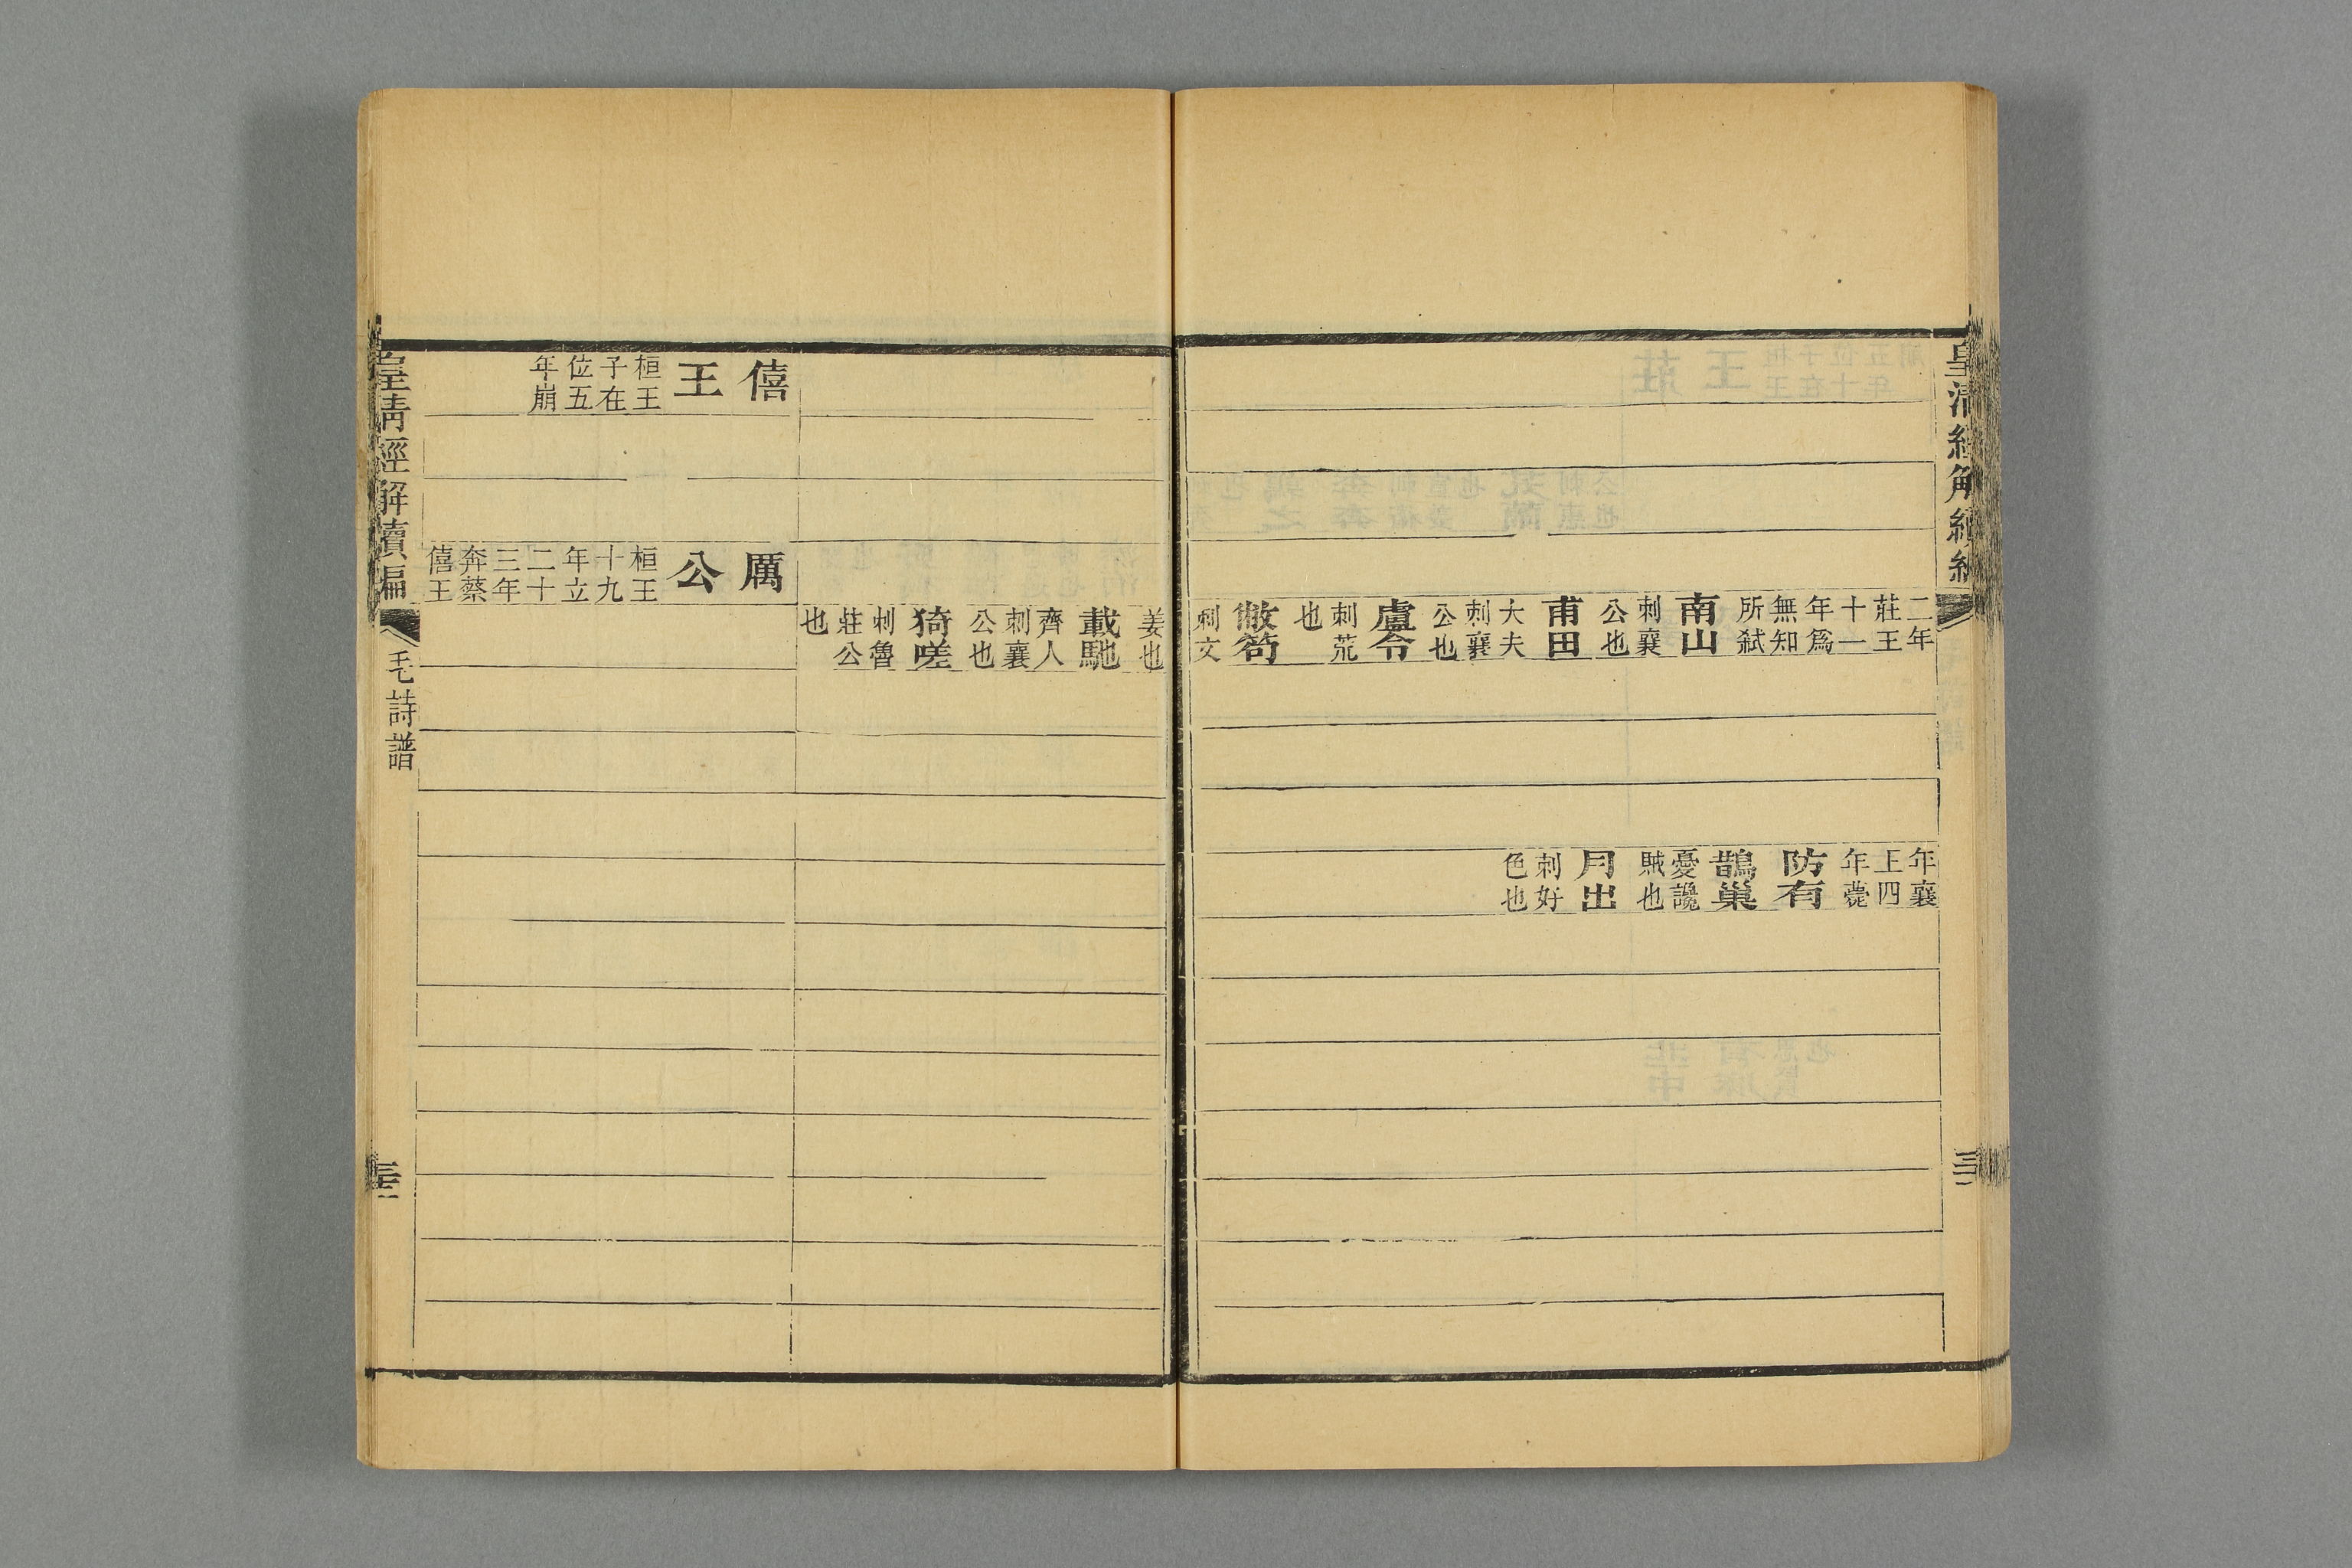 皇清經解續編
二年莊王十一年爲無知所弒南山刺襄公也甫田大夫刺襄公也盧令刺荒也敝笱刺文
年襄王四年薨防有鵲巢憂讒賊也月出刺好色也
姜也載馳齊人刺襄公也猗嗟刺魯莊公也
僖王桓王子在位五年崩
厲公桓王十九年立二十三年奔蔡僖王
皇清經解續編
毛詩譜